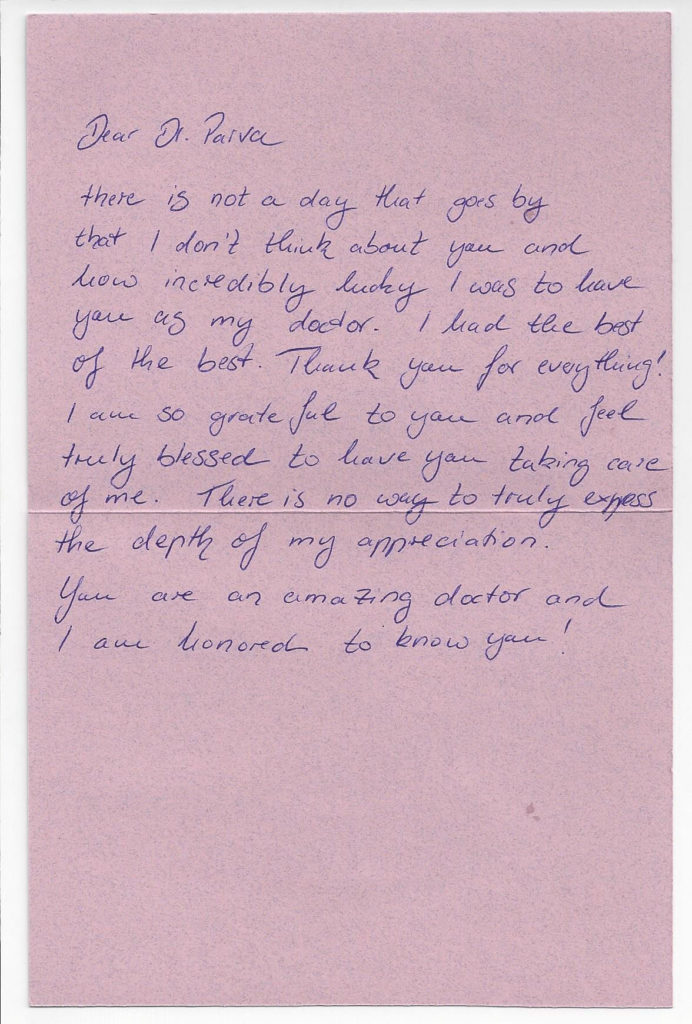 Dear Dr. Paiva
there is not a day that goes by
that I don't think about you and
how incredibly lucky I was to have
you as my doctor. I had the best
of the best. Thank you for everything!
I am so grateful to you and feel
truly blessed to have you taking care
of me. There is no way to truly express
the depth of my appreciation.
You are an amazing doctor and
I am honored to know you!